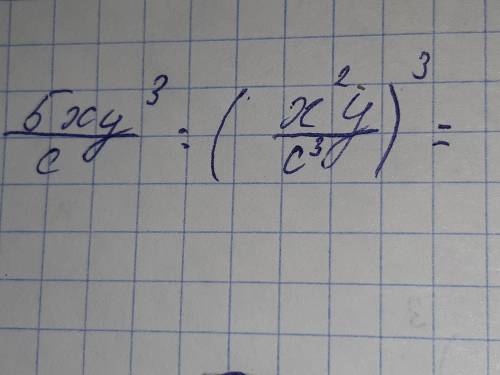 5xy³/c : (x²y/c³)³ =